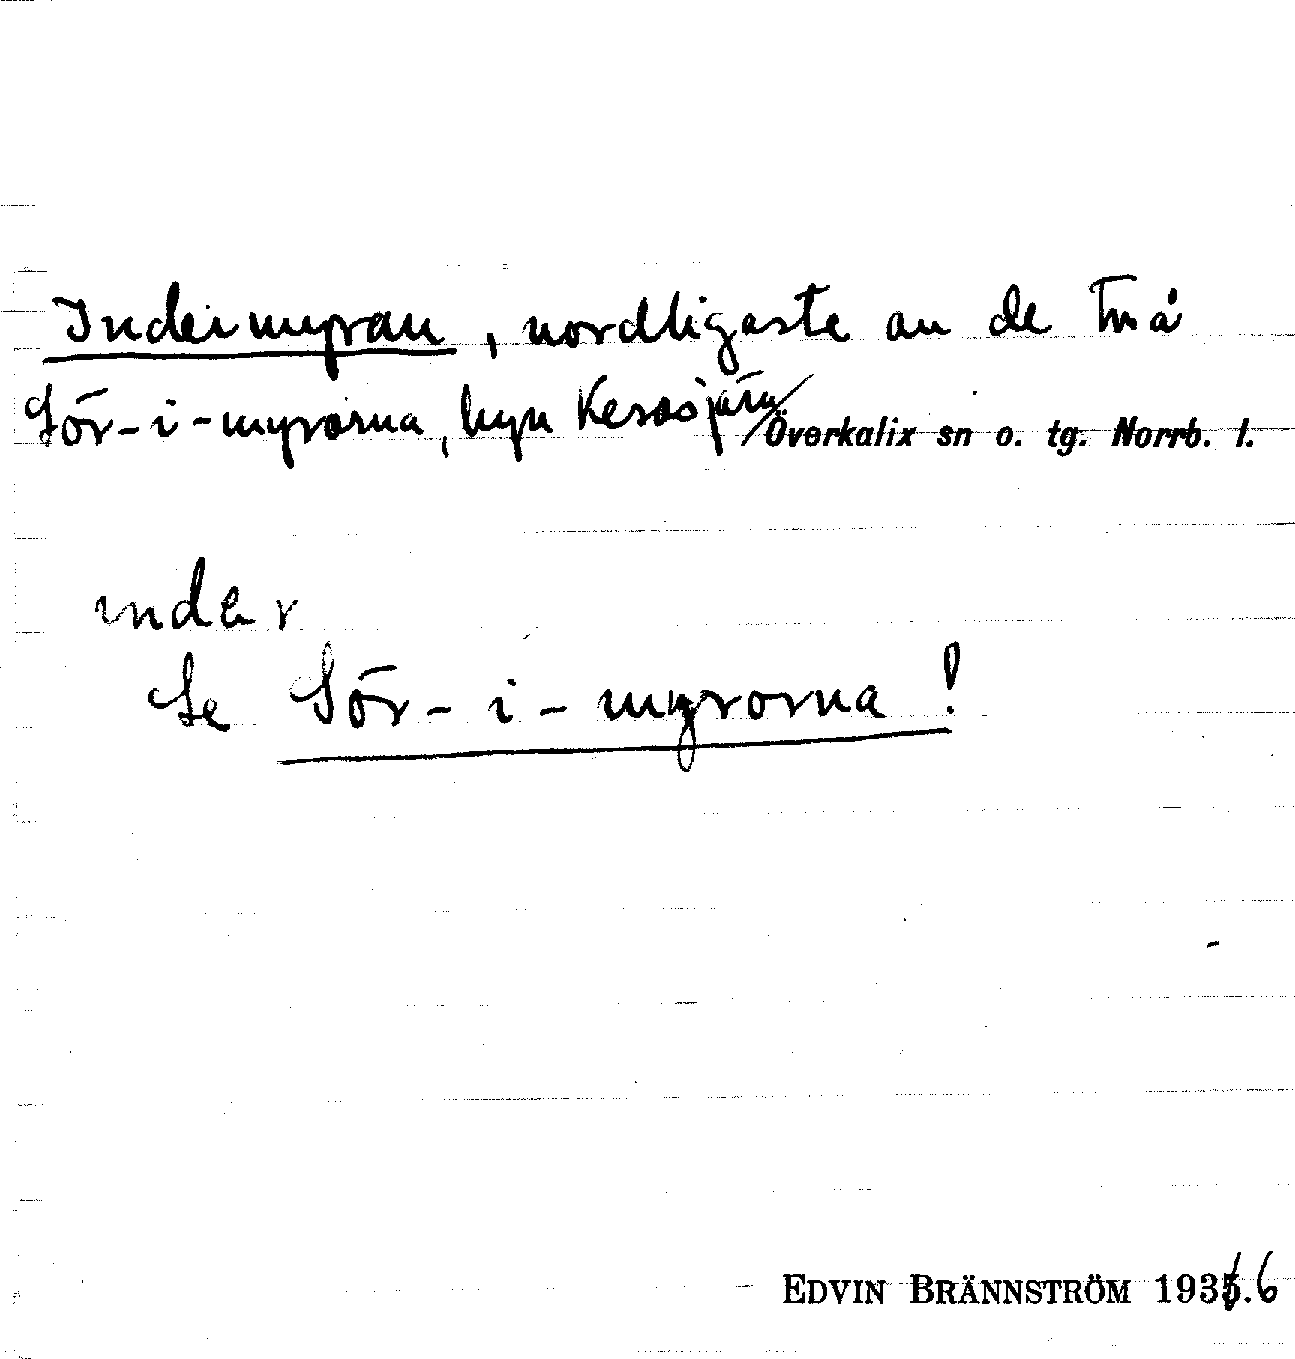 Indermyran, nordligaste av de två
Sör-i-myrorna, byn Kesasjärv/Överkalix sn o. tg. Norrb. l.
indər
Se Sör-i-myrorna!
EDVIN BRÄNNSTRÖM 1935.6